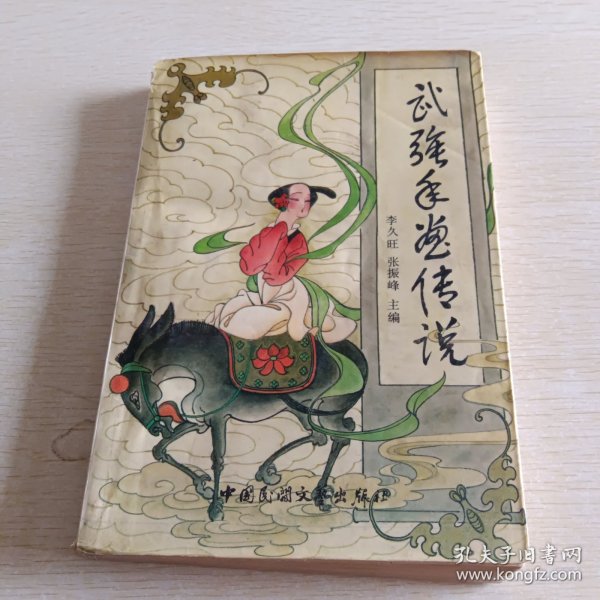 武强年画传说
李久旺 张振峰 主编
中国民间文艺出版社
孔夫子旧书网
www.kongfz.com